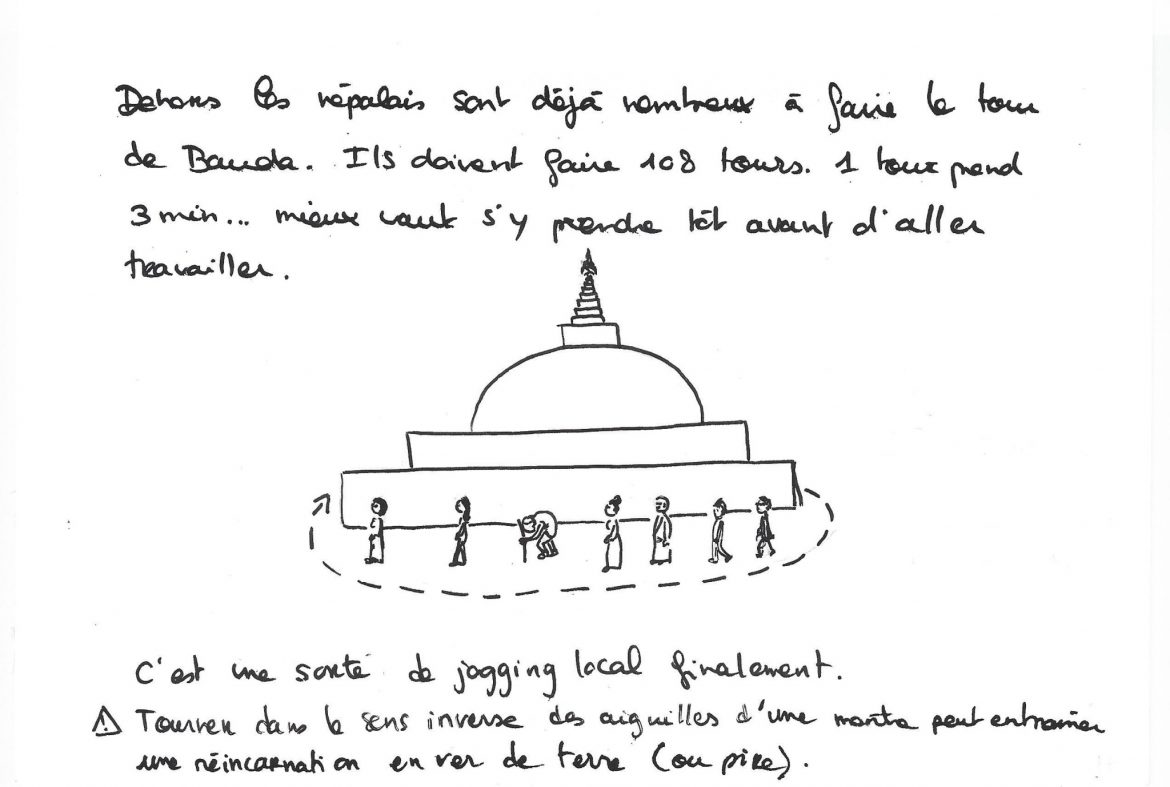 Dehors les népalais sont déjà nombreux à faire le tour
de Bauda. Ils doivent faire 108 tours. 1 tour prend
3 min... mieux vaut s'y prendre tôt avant d'aller
travailler.
C'est une sorte de jogging local finalement.
⚠ Tourner dans le sens inverse des aiguilles d'une montre peut entraîner
une réincarnation en ver de terre (ou pire).